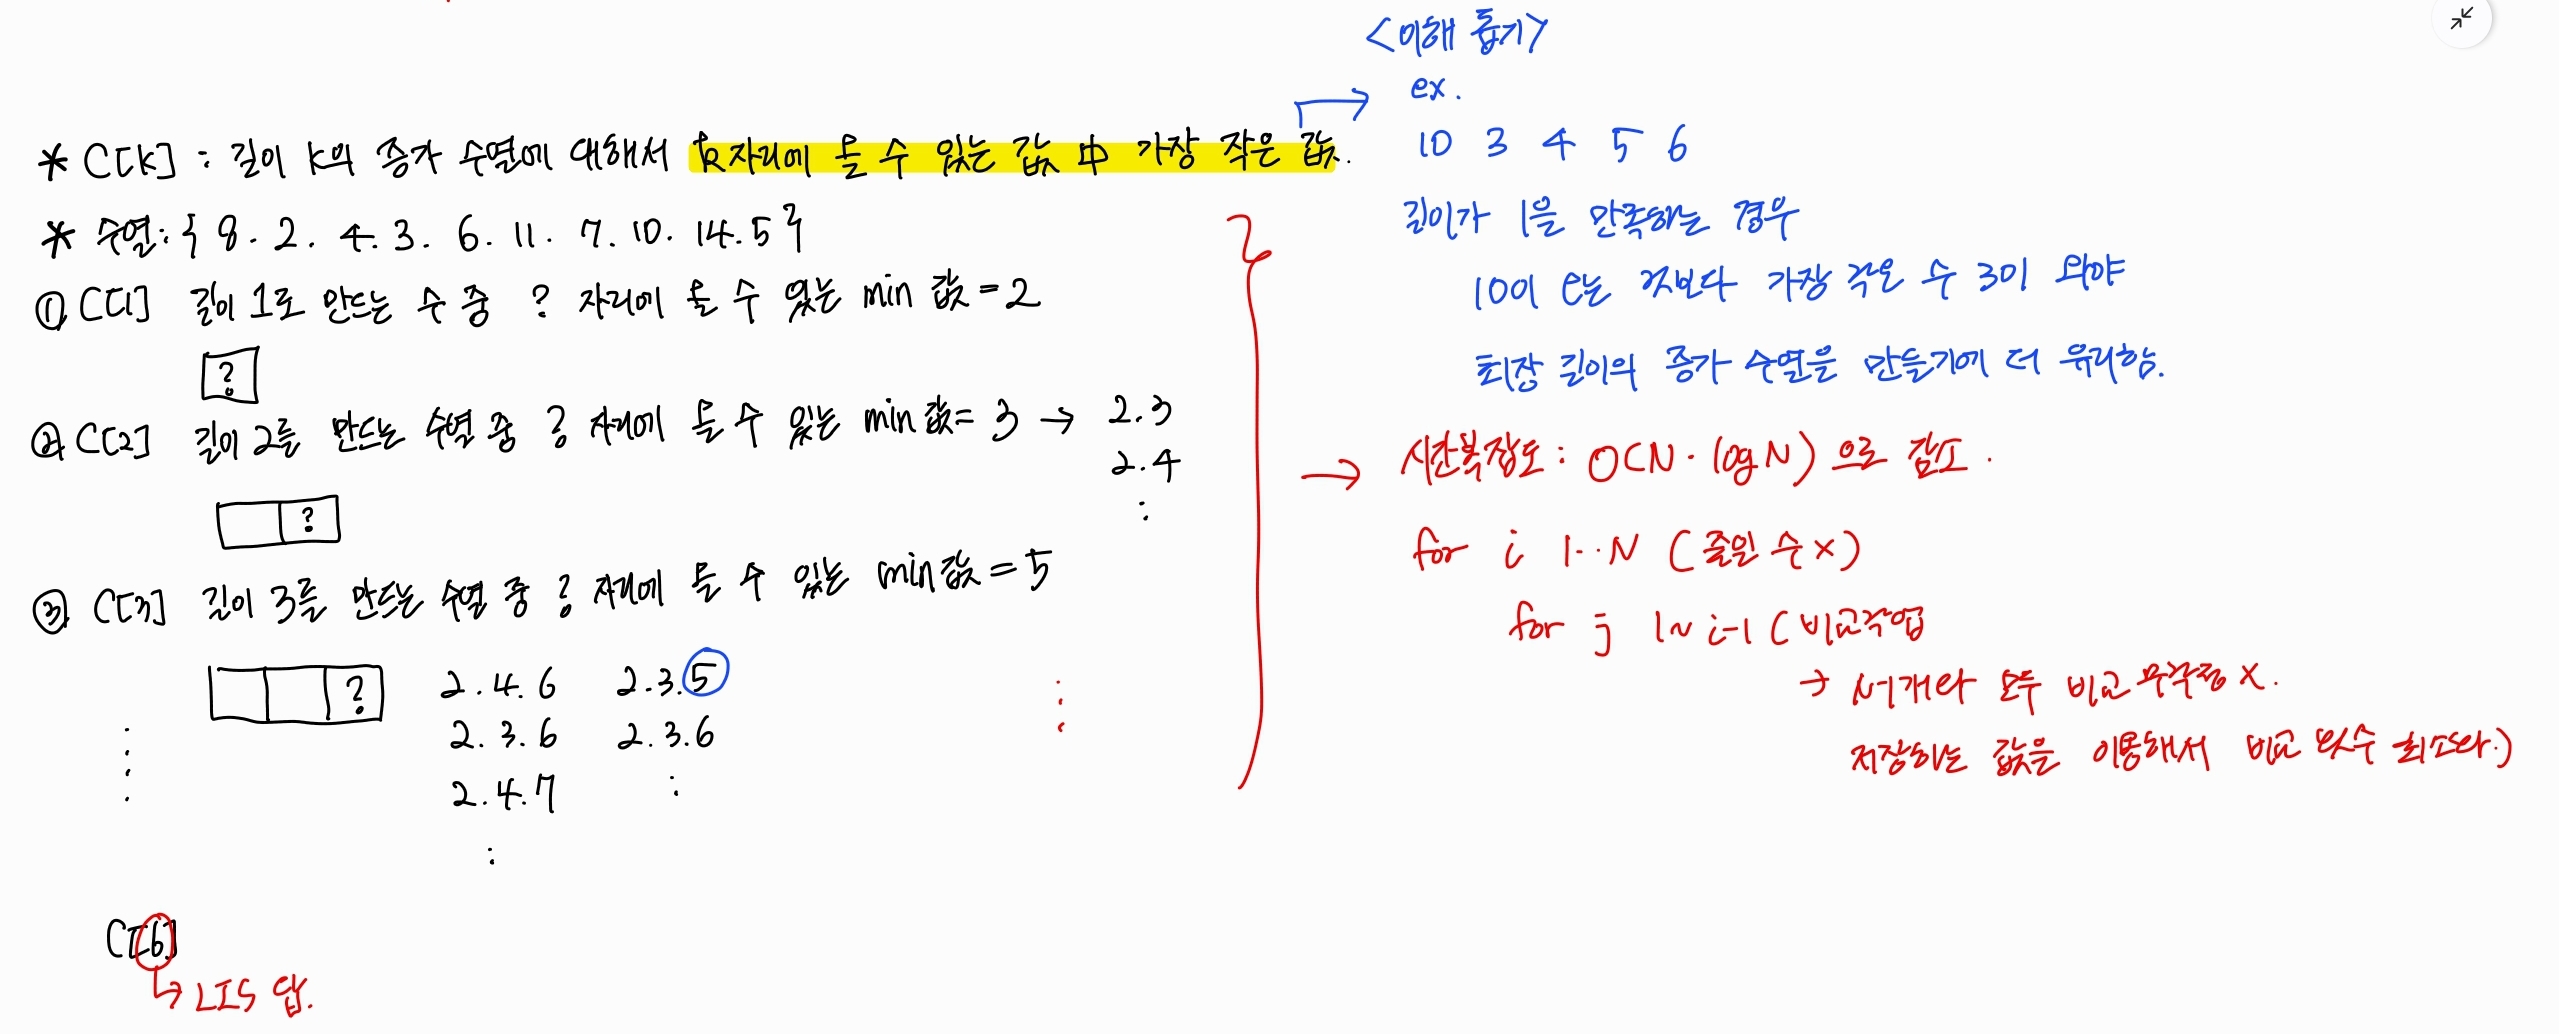 * C[k] : 길이 k의 증가 수열에 대해서 k자리에 올 수 있는 값 中 가장 작은 값.
* 수열: { 8. 2. 4. 3. 6. 11. 7. 10. 14. 5 }
① C[1] 길이 1로 만드는 수 중 ? 자리에 올 수 있는 min 값 = 2
?
② C[2] 길이 2를 만드는 수열 중 ? 자리에 올 수 있는 min 값 = 3 → 2.3
2.4
:
?
③ C[3] 길이 3를 만드는 수열 중 ? 자리에 올 수 있는 min 값 = 5
?
2.4.6 2.3.5
2.3.6 2.3.6
2.4.7 :
:
C[6]
↳ LIS 답.
<이해 돕기>
ex.
10 3 4 5 6
길이가 1을 만족하는 경우
10이 오는 것보다 가장 작은 수 3이 와야
최장 길이의 증가 수열을 만들기에 더 유리함.
→ 시간복잡도 : O(N · logN) 으로 감소.
for i 1··N ( 줄일 수 x )
for j 1~ i-1 ( 비교작업
→ 모두 비교 무작정 x.
저장하는 값을 이용해서 비교 횟수 최소화.)